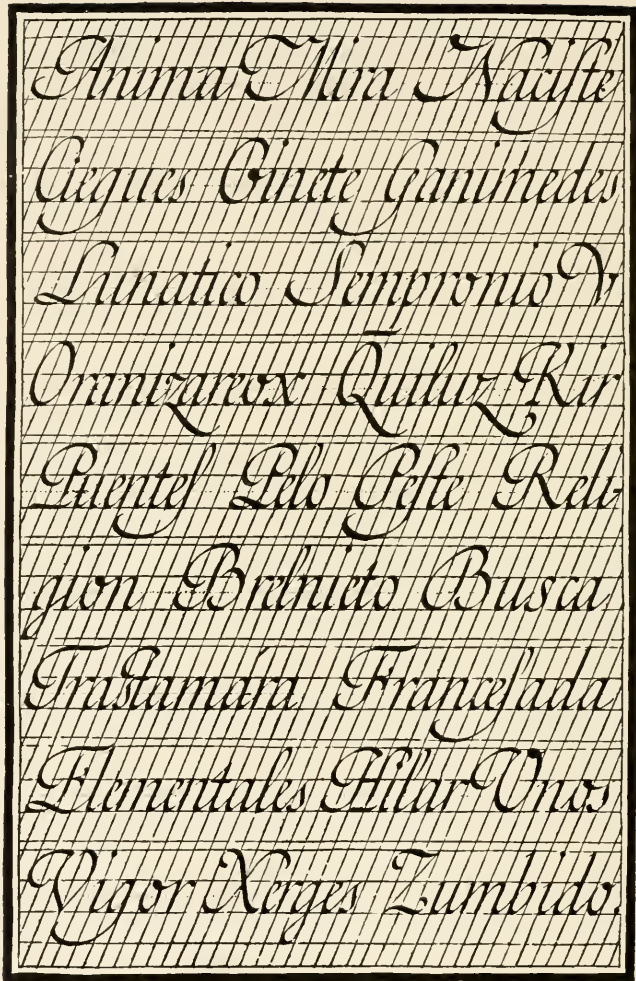 Anima Mira Naciſte
Ciegues Ginete Ganimedes
Lunatico Sempronio Y
Oranizareox Quiluz Kir
Puenteſ Pelo Peſte Reli-
gion Brelnieto Busca
Traſtamára Franceſada
Elementales Hilar Vnos
Vigor Xerges Zumbido.